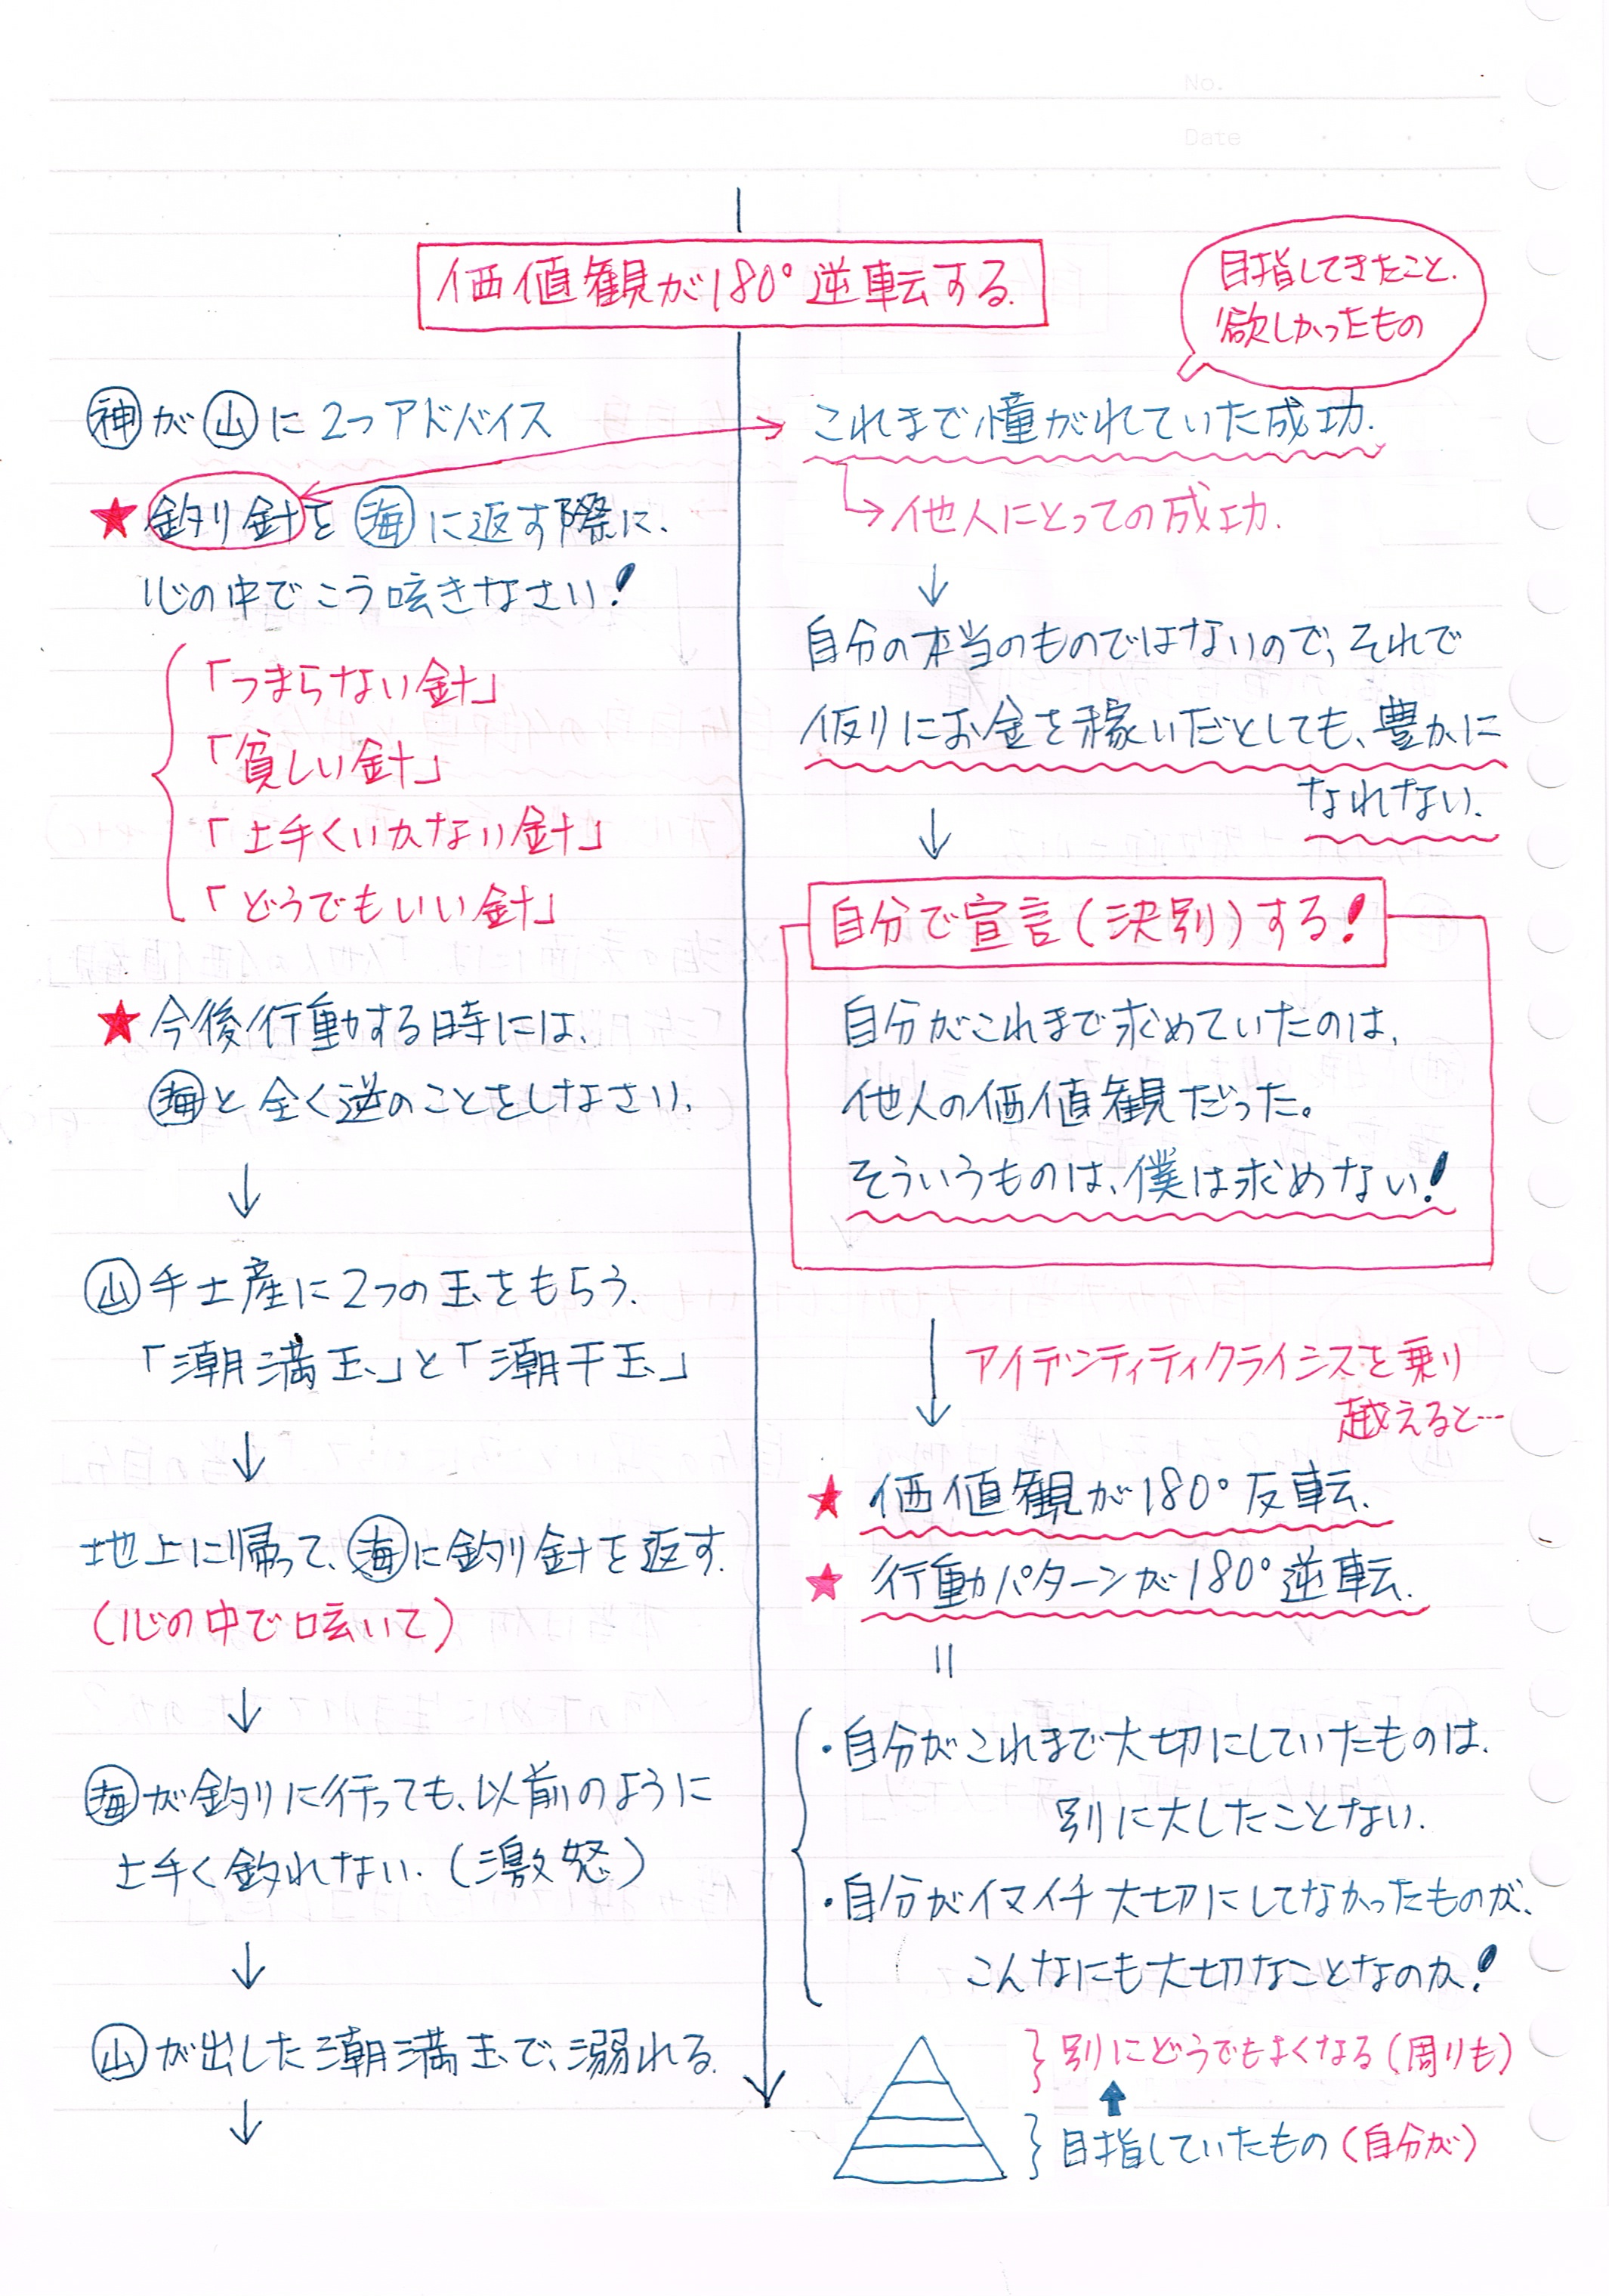 No.
Date
価値観が180°逆転する.
目指してきたこと.
欲しかったもの
神が山に2つアドバイス
★釣り針を海に返す際に、
心の中でこう呟きなさい!
「つまらない針」
「貧しい針」
「上手くいかない針」
「どうでもいい針」
★今後行動する時には、
海と全く逆のことをしなさい、
↓
山手土産に2つの玉をもらう.
「潮満玉」と「潮干玉」
↓
地上に帰って、海に釣り針を返す.
(心の中で呟いて)
↓
海が釣りに行っても、以前のように
上手く釣れない.(激怒)
↓
山が出した潮満玉で、溺れる.
↓
これまで憧がれていた成功.
→他人にとっての成功.
↓
自分の本当のものではないので、それで
仮りにお金を稼いだとしても、豊かに
なれない.
↓
自分で宣言(決別)する!
自分がこれまで求めていたのは、
他人の価値観だった。
そういうものは、僕は求めない!
↓
アイデンティティクライシスを乗り
越えると…
★価値観が180°反転.
★行動パターンが180°逆転.
||
・自分がこれまで大切にしていたものは、
別に大したことない.
・自分がイマイチ大切にしてなかったものが、
こんなにも大切なことなのか!
}別にどうでもよくなる(周りも)
↑
}目指していたもの(自分が)